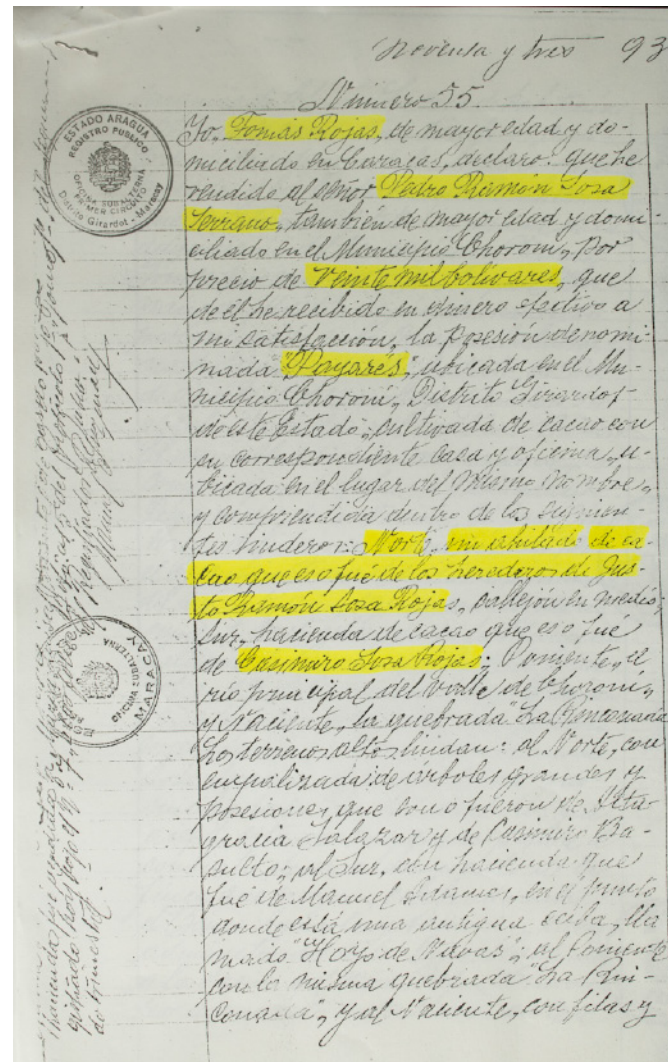 Noventa y tres 93
Número 55.
Yo, Tomás Rojas, de mayor edad y do-
miciliado en Caracas, declaro: que he
vendido al señor Pedro Ramón Sosa
Serrano, también de mayor edad y domi-
ciliado en el Municipio Choroní, por
precio de veinte mil bolívares, que
de él he recibido en dinero efectivo a
mi satisfacción, la posesión denomi-
nada "Payarés", ubicada en el Mu-
nicipio Choroní, Distrito Girardot
de este Estado, cultivada de cacao con
su correspondiente casa y oficina, u-
bicada en el lugar del mismo nombre,
y comprendida dentro de los siguien-
tes linderos: Norte, un ahilado de ca-
cao que es o fué de los herederos de Jus-
to Ramón Sosa Rojas, callejón en medio;
Sur, hacienda de cacao que es o fué
de Casimiro Sosa Rojas; Poniente, el
río principal del valle de Choroní,
y Naciente, la quebrada "La Rinconada"
Los terrenos altos lindan: al Norte, con
empalizada de árboles grandes y
posesiones que son o fueron de Alta-
gracia Salazar y de Casimiro Ba-
sulto; al Sur, con hacienda que
fué de Manuel Adames, en el punto
donde está una antigua ceiba, lla-
mado "Hoyo de Navas"; al Poniente
con la misma quebrada "La Rin-
conada", y al Naciente, con filas y
ESTADO ARAGUA
REGISTRO PUBLICO
OFICINA SUBALTERNA
PRIMER CIRCUITO
Distrito Girardot - Maracay
OFICINA SUBALTERNA
MARACAY